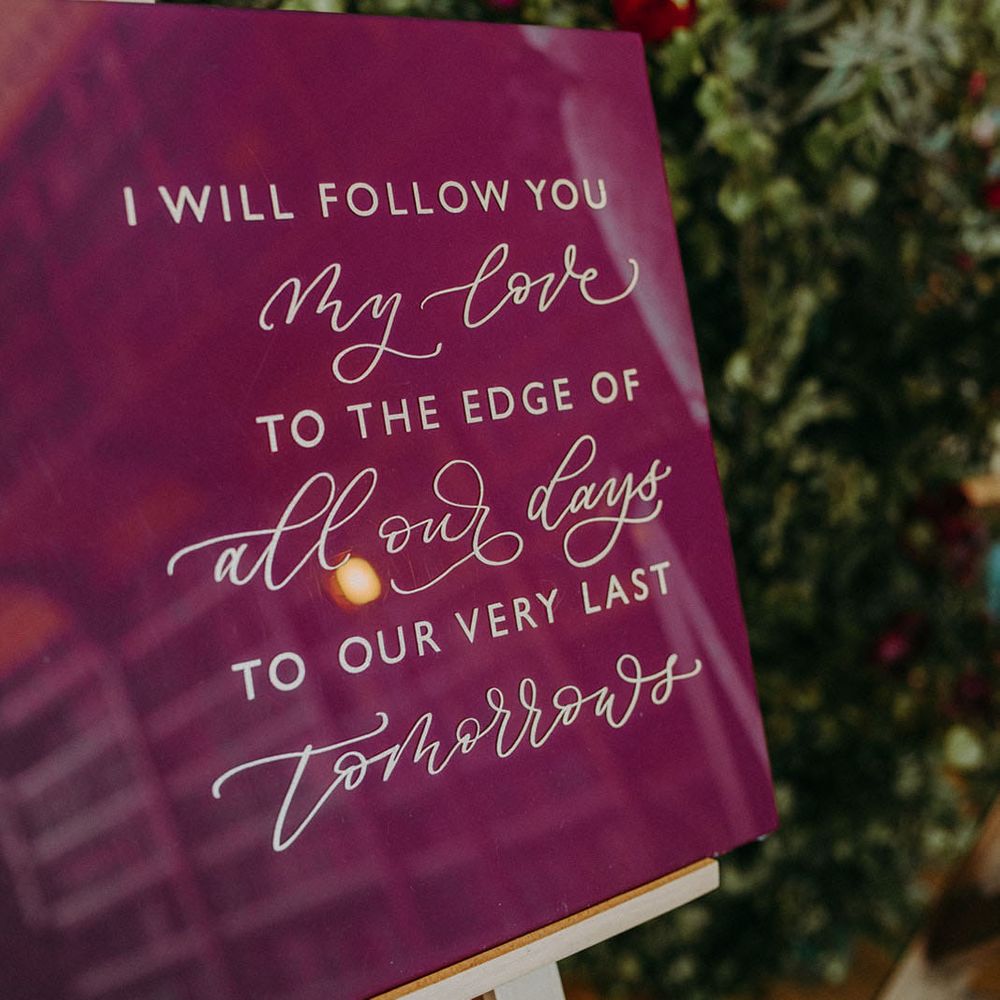 I WILL FOLLOW YOU
my love
TO THE EDGE OF
all our days
TO OUR VERY LAST
tomorrows